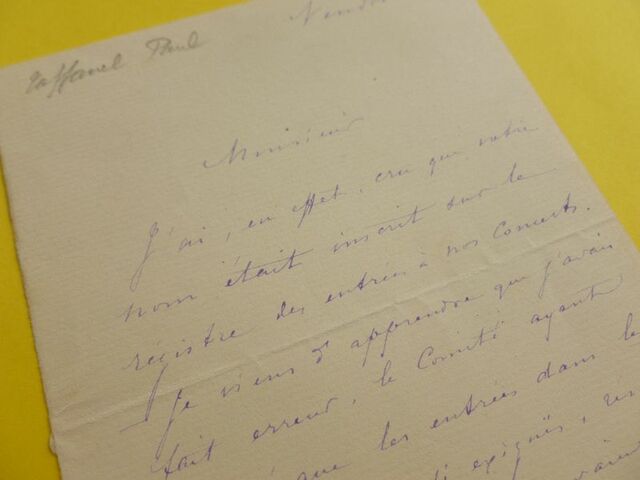 Taffanel Paul
Vendre
Monsieur
J'ai, en effet, cru que votre
nom était inscrit sur le
régistre des entrées à nos Concerts.
Je viens d'apprendre que j'avais
fait erreur, le Comité ayant
que les entrées dans le
exigüs,